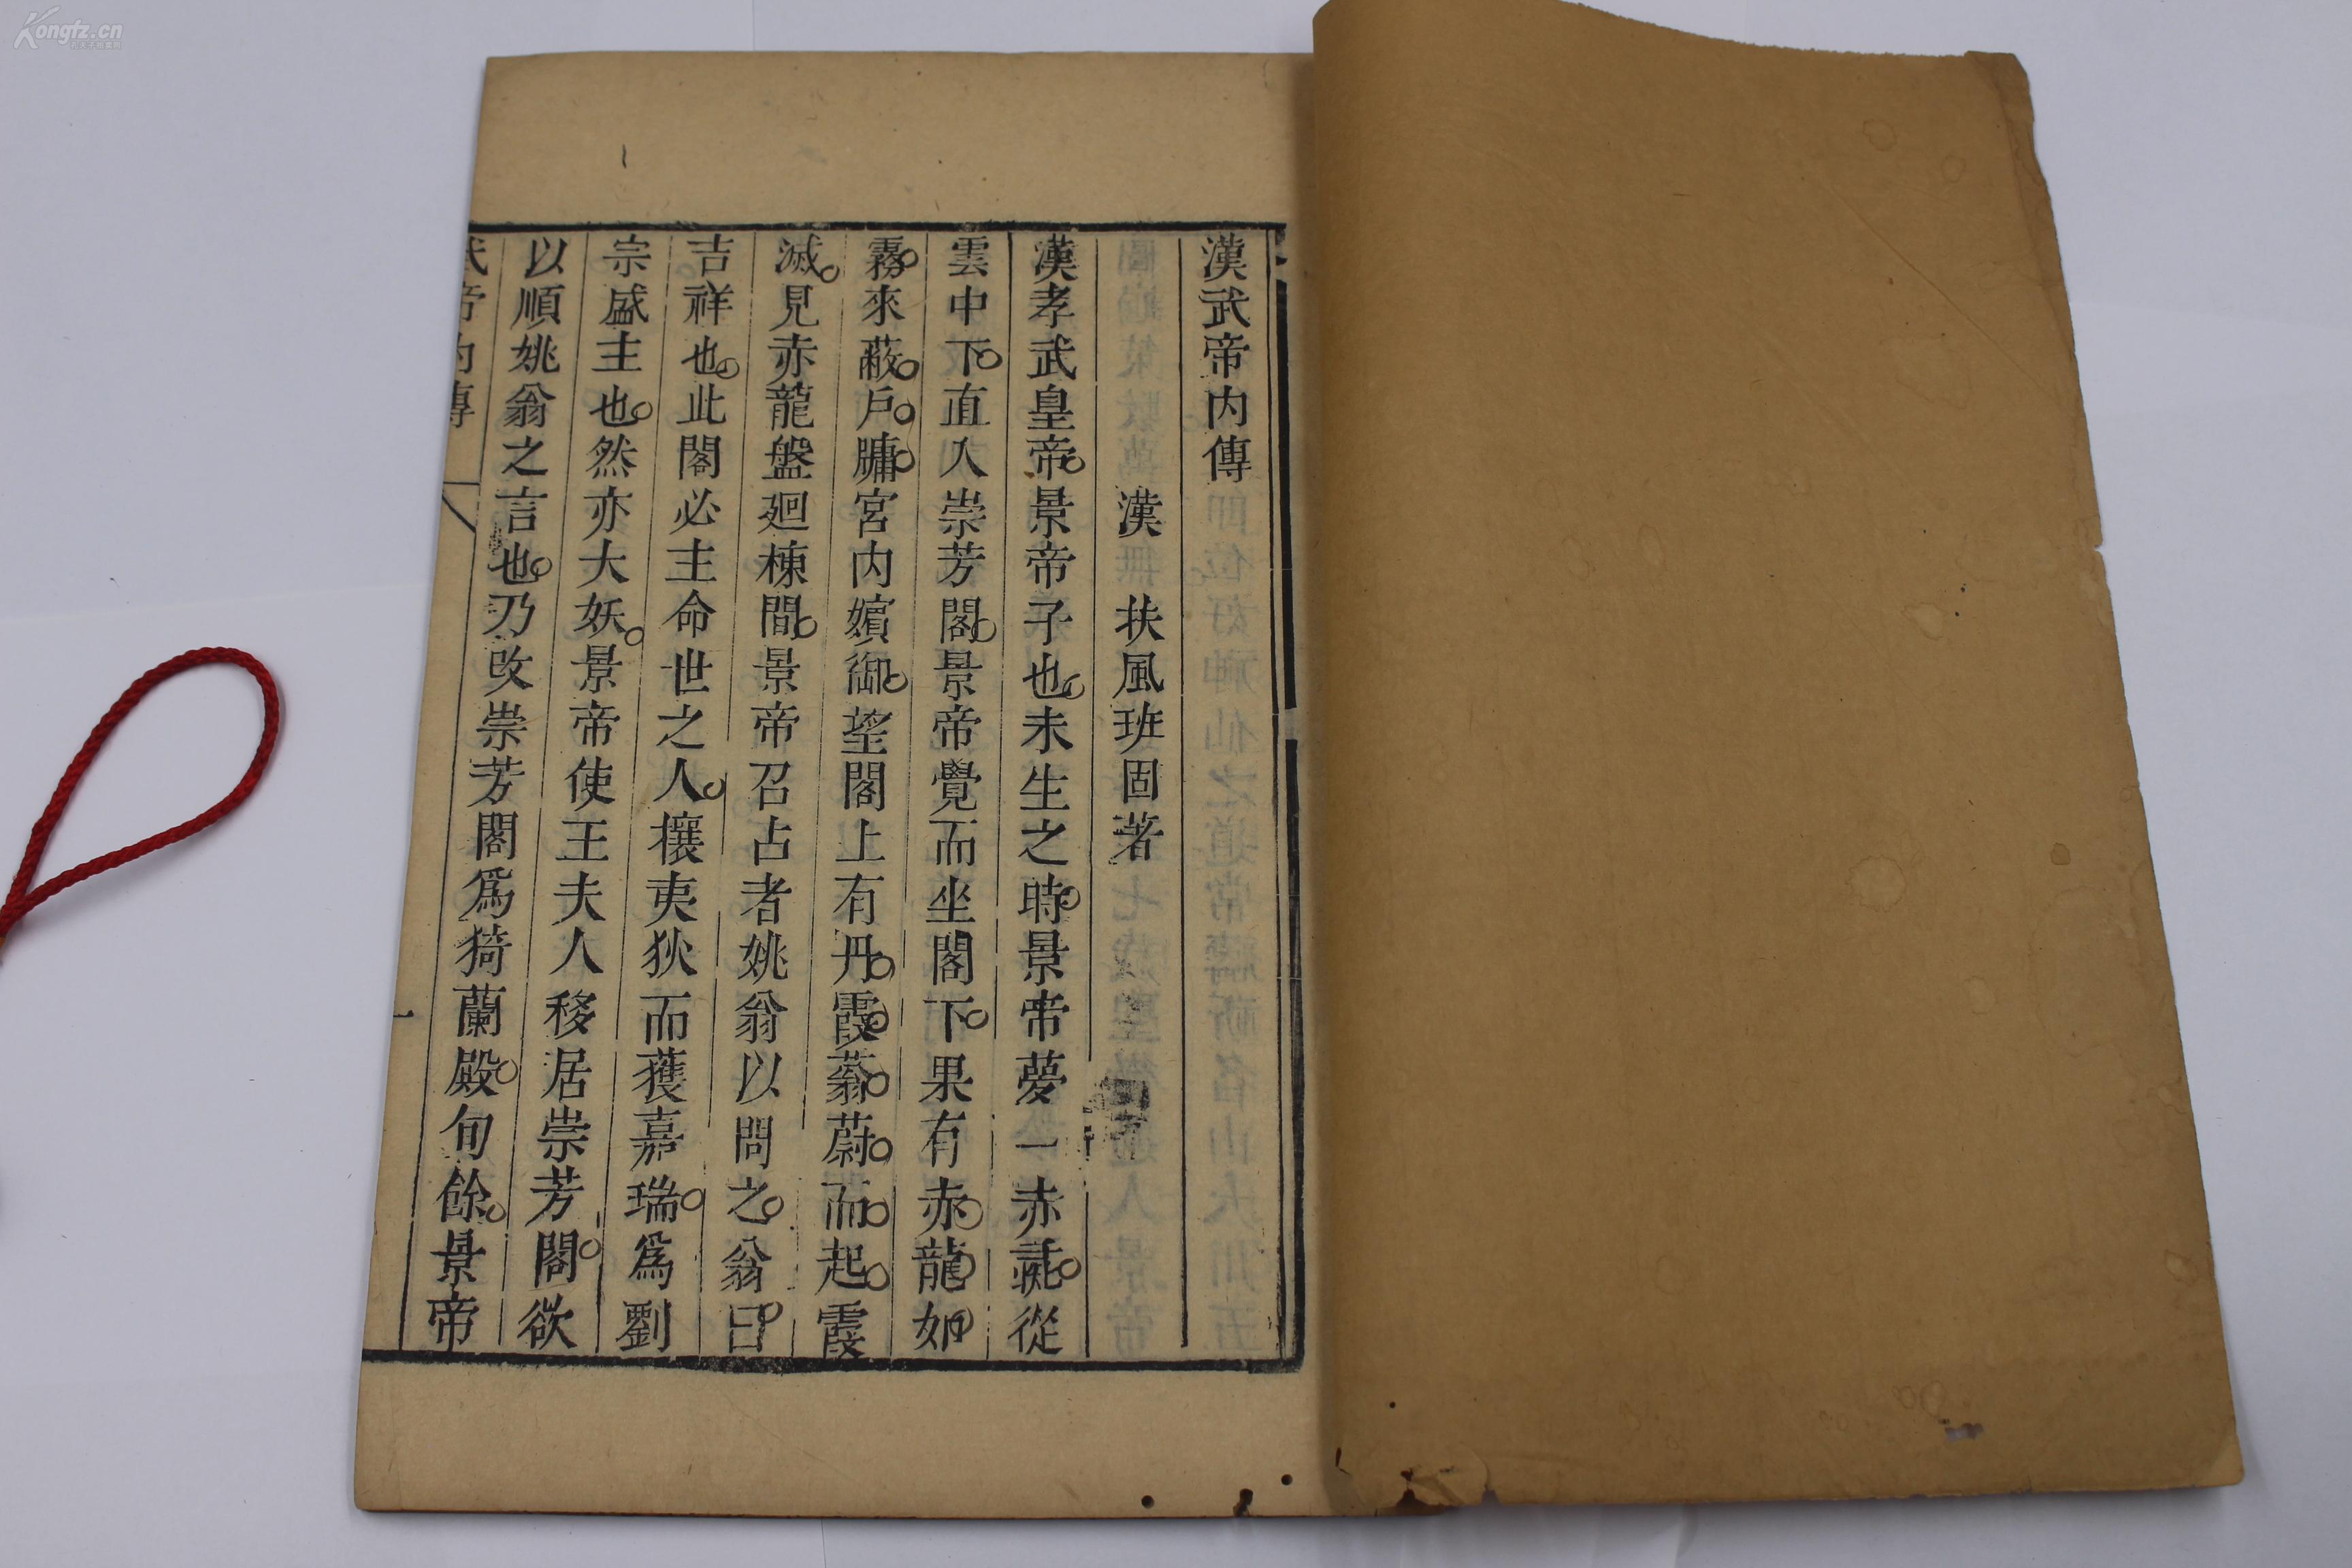 漢武帝內傳
漢 扶風班固著
漢孝武皇帝景帝子也未生之時景帝夢一赤彘從
雲中下直入崇芳閣景帝覺而坐閣下果有赤龍如
霧來蔽戶牖宮內嬪御望閣上有丹霞蓊蔚而起霞
滅見赤龍盤廻棟間景帝召占者姚翁以問之翁曰
吉祥也此閣必主命世之人攘夷狄而獲嘉瑞爲劉
宗盛主也然亦大妖景帝使王夫人移居崇芳閣欲
以順姚翁之言也乃改崇芳閣爲猗蘭殿旬餘景帝
武帝內傳
一
Kongfz.cn